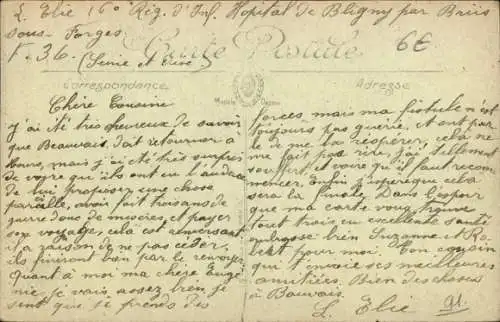 L. Elie 16º Rég. d'Inf. Hopital de Bligny par Briis
sous-Forges
V. 36. (Seine et Oise)
6€
Carte Postale
Correspondance
Adresse
Chère Cousine
J'ai été très heureux de savoir
que Beauvais, doit retourner à
mais j'ai été très surpris
de voir qu'ils ont eu l'audace
de lui proposer une chose
pareille, avoir fait trois ans de
guerre donc de misères, et payer
son voyage, cela est renversant
il a raison de ne pas céder,
ils finiront bien par le renvoyer
Quant à moi ma chère Eugé-
nie, je vais assez bien je
sent que je prends des
forces, mais ma fistule n'est
toujours pas guérie, et ont par-
le de me la réopérer, cela ne
me fait pas rire, j'ai tellement
souffert, et voire qu'il faut recom-
mencer. Enfin j'espère que cela
sera la finale. Dans l'espoir
que ma carte vous trouve
tout trois en excellente santé
embrasse bien Suzanne et Ro-
bert pour moi. Ton cousin
qui t'envoie ses meilleures
amitiées. Bien des choses
à Beauvais.
L. Elie